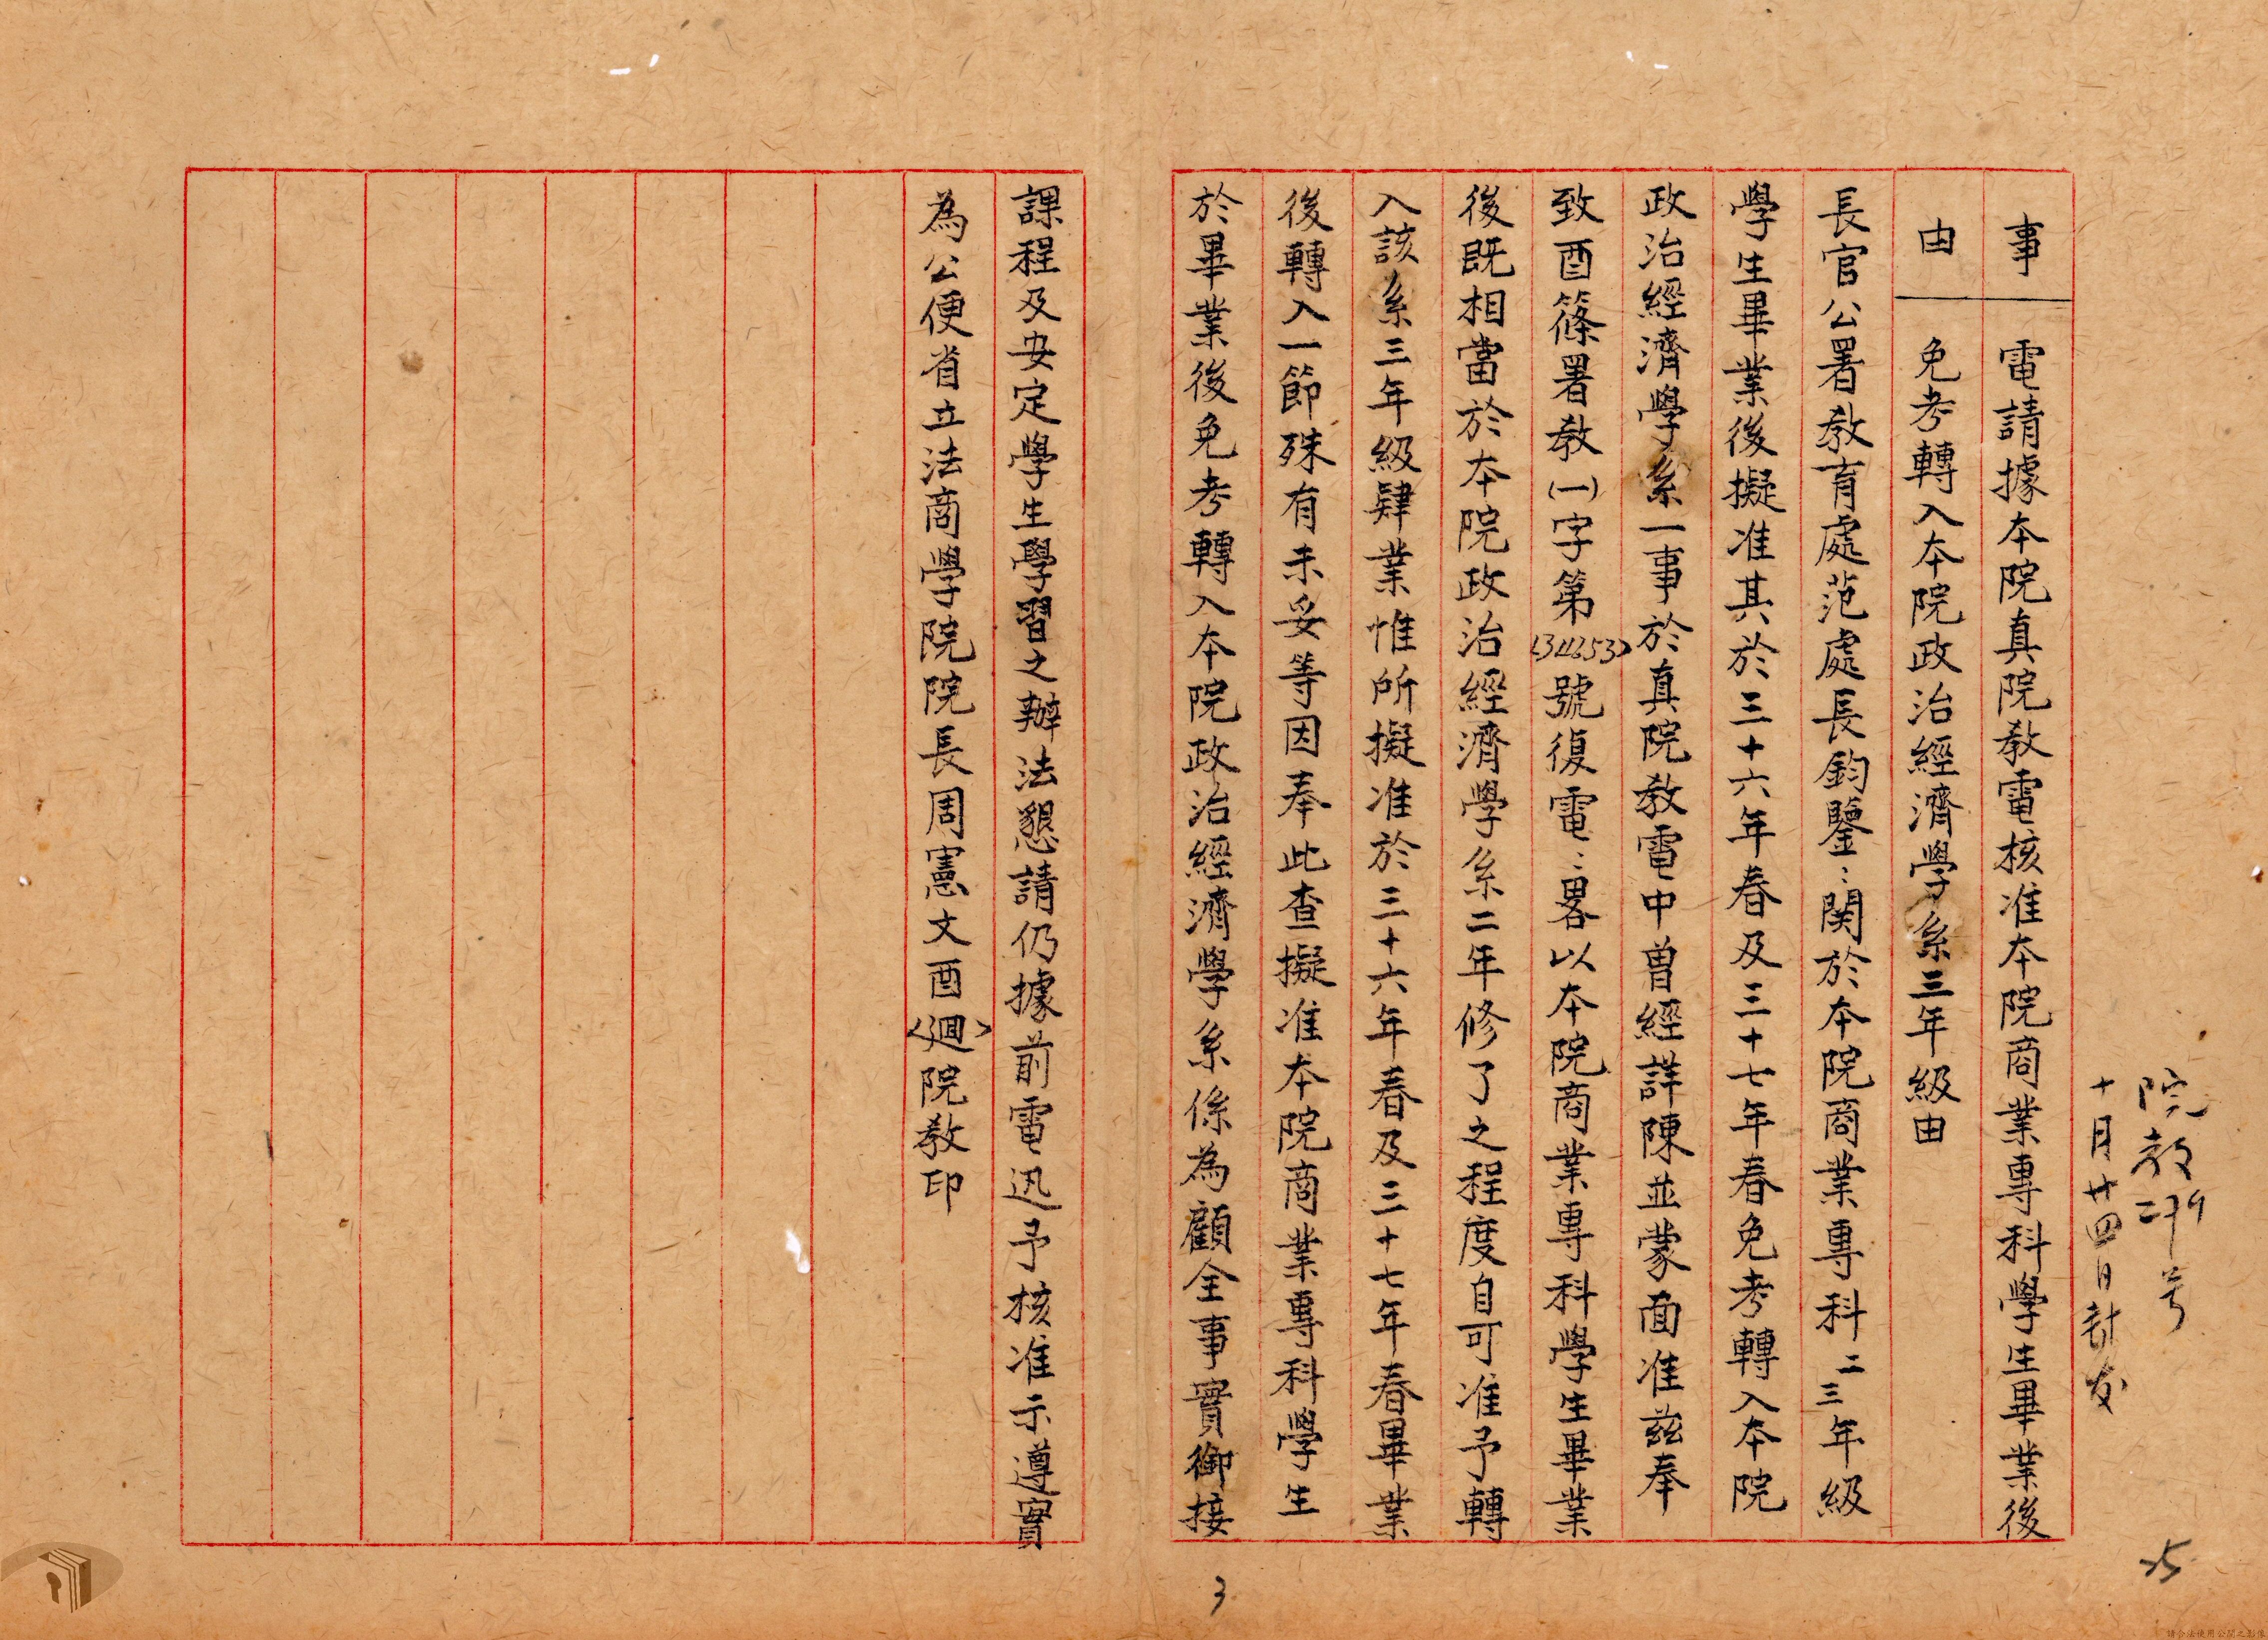 院教 号
十月廿四日封发
事 電請據本院真院教電核准本院商業專科學生畢業後
由 免考轉入本院政治經濟學系三年級由
長官公署教育處范處長鈞鑒：関於本院商業專科二三年級
學生畢業後擬准其於三十六年春及三十七年春免考轉入本院
政治經濟學系一事於真院教電中曾經詳陳並蒙面准茲奉
致酉篠署教(一)字第 號復電：畧以本院商業專科學生畢業
後既相當於本院政治經濟學系二年修了之程度自可准予轉
入該系三年級肄業惟所擬准於三十六年春及三十七年春畢業
後轉入一節殊有未妥等因奉此查擬准本院商業專科學生
於畢業後免考轉入本院政治經濟學系係為顧全事實銜接
課程及安定學生學習之辦法懇請仍據前電迅予核准示遵實
為公便省立法商學院院長周憲文酉<廻>院教印
25
3
請合法使用公開之影像